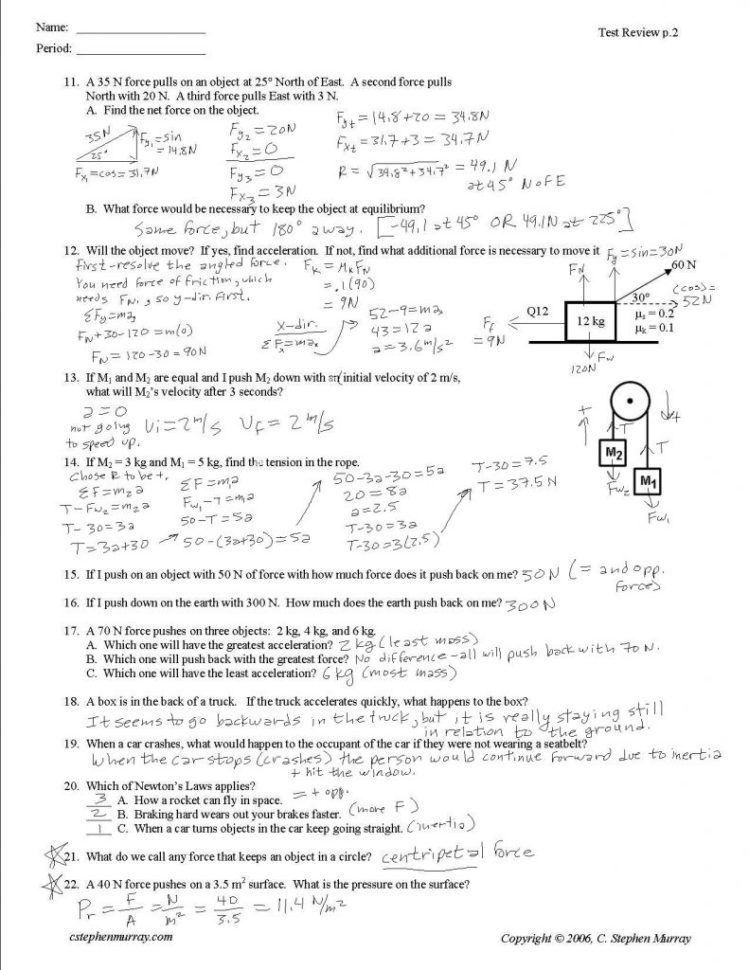 Name:
Test Review p.2
Period:
11. A 35 N force pulls on an object at 25° North of East. A second force pulls
North with 20 N. A third force pulls East with 3 N.
A. Find the net force on the object.
35N
25°
Fy₁ = sin
= 14.8N
Fx₁ = cos = 31.7N
Fy₂ = 20N
Fx₂ = 0
Fy₃ = 0
Fx₃ = 3N
Fyt = 14.8 + 20 = 34.8N
Fxt = 31.7 + 3 = 34.7N
R = √34.8² + 34.7² = 49.1 N
at 45° N of E
B. What force would be necessary to keep the object at equilibrium?
Same force, but 180° away. [-49.1 at 45° OR 49.1N at 225°]
12. Will the object move? If yes, find acceleration. If not, find what additional force is necessary to move it
First-resolve the angled force.
You need force of friction, which
needs FN, so y-dir. first.
ΣFy = ma
FN + 30 - 120 = m(0)
FN = 120 - 30 = 90N
Fk = μkFN
= .1(90)
= 9N
X-dir.
ΣFx = max
52 - 9 = ma
43 = 12a
a = 3.6 m/s²
Fy = sin = 30N
FN
60 N
(cos) =
52N
30°
Q12
12 kg
μs = 0.2
μk = 0.1
Ff
= 9N
Fw
120N
13. If M₁ and M₂ are equal and I push M₂ down with an initial velocity of 2 m/s,
what will M₂'s velocity after 3 seconds?
a = 0
not going
to speed up.
Vi = 2 m/s Vf = 2 m/s
14. If M₂ = 3 kg and M₁ = 5 kg, find the tension in the rope.
Chose R to be +.
ΣF = m₂a
T - Fw₂ = m₂a
T - 30 = 3a
T = 3a + 30
ΣF = ma
Fw₁ - T = m₁a
50 - T = 5a
50 - (3a + 30) = 5a
50 - 3a - 30 = 5a
20 = 8a
a = 2.5
T - 30 = 3a
T - 30 = 3(2.5)
T - 30 = 7.5
T = 37.5 N
+
+
T
T
M₂
M₁
Fw₂
Fw₁
15. If I push on an object with 50 N of force with how much force does it push back on me? 50N (= and opp.
forces)
16. If I push down on the earth with 300 N. How much does the earth push back on me? 300N
17. A 70 N force pushes on three objects: 2 kg, 4 kg, and 6 kg.
A. Which one will have the greatest acceleration? 2 kg (least mass)
B. Which one will push back with the greatest force? No difference - all will push back with 70 N.
C. Which one will have the least acceleration? 6 kg (most mass)
18. A box is in the back of a truck. If the truck accelerates quickly, what happens to the box?
It seems to go backwards in the truck, but it is really staying still
in relation to the ground.
19. When a car crashes, what would happen to the occupant of the car if they were not wearing a seatbelt?
When the car stops (crashes) the person would continue forward due to inertia
+ hit the window.
20. Which of Newton's Laws applies?
3 A. How a rocket can fly in space. = + opp.
2 B. Braking hard wears out your brakes faster. (more F)
1 C. When a car turns objects in the car keep going straight. (inertia)
21. What do we call any force that keeps an object in a circle? centripetal force
22. A 40 N force pushes on a 3.5 m² surface. What is the pressure on the surface?
Pr = F/A = N/m² = 40/3.5 = 11.4 N/m²
cstephenmurray.com
Copyright © 2006, C. Stephen Murray